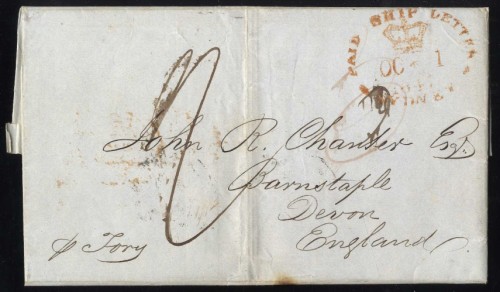 PAID SHIP LETTER
OC 1
SYDNEY
John R. Chanter Esqr.
Barnstaple
Devon
England
p Tory